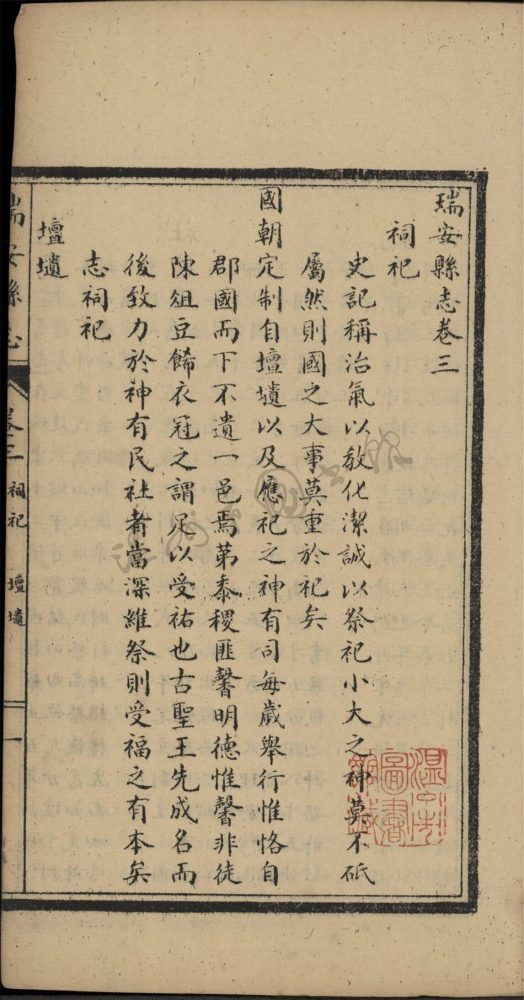 瑞安縣志卷三
祠祀
史記稱治氣以教化潔誠以祭祀小大之神莫不砥
屬然則國之大事莫重於祀矣
國朝定制自壇壝以及應祀之神有司每歲舉行惟恪自
郡國而下不遺一邑焉第黍稷匪馨明德惟馨非徒
陳俎豆餙衣冠之謂足以受祐也古聖王先成名而
後致力於神有民社者當深維祭則受福之有本矣
志祠祀
壇壝
瑞安縣志
卷三
祠祀
壇壝
一
溫州市
圖書
館藏